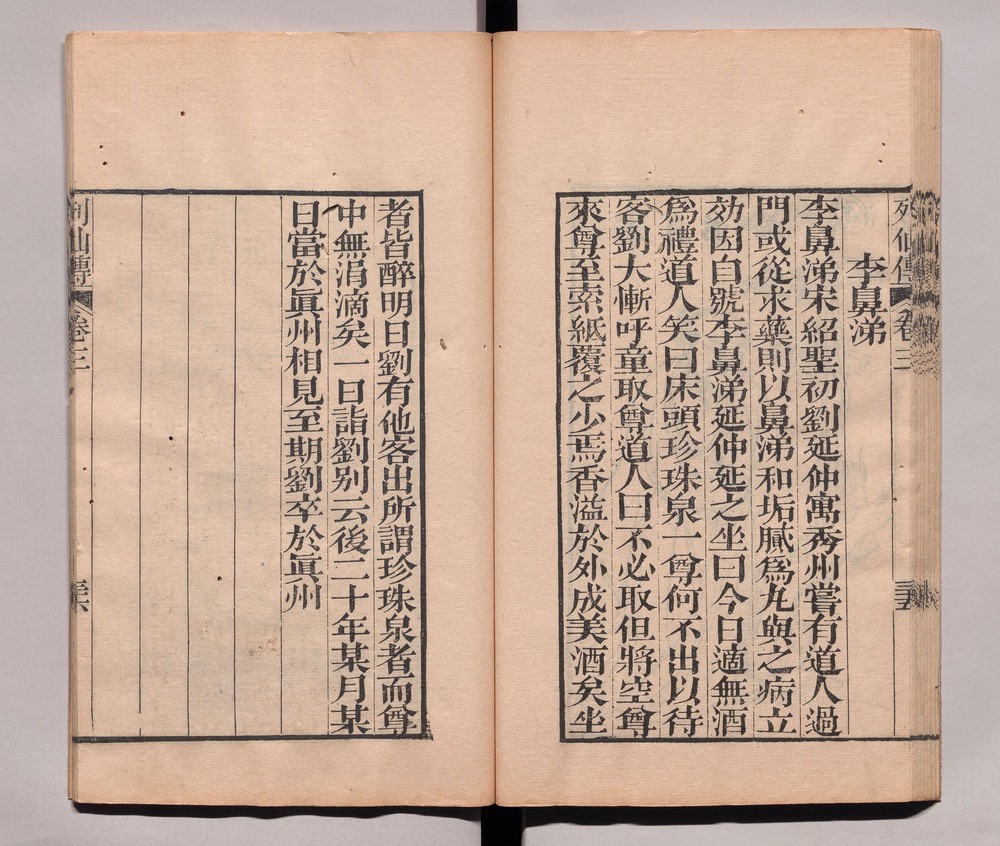 列仙傳 卷三
李鼻涕
李鼻涕宋紹聖初劉延仲寓秀州嘗有道人過
門或從求藥則以鼻涕和垢膩爲丸與之病立
効因自號李鼻涕延仲延之坐曰今日適無酒
爲禮道人笑曰床頭珍珠泉一尊何不出以待
客劉大慚呼童取尊道人曰不必取但將空尊
來尊至索紙覆之少焉香溢於外成美酒矣坐
者皆醉明日劉有他客出所謂珍珠泉者而尊
中無涓滴矣一日詣劉别云後二十年某月某
日當於眞州相見至期劉卒於眞州
列仙傳 卷三